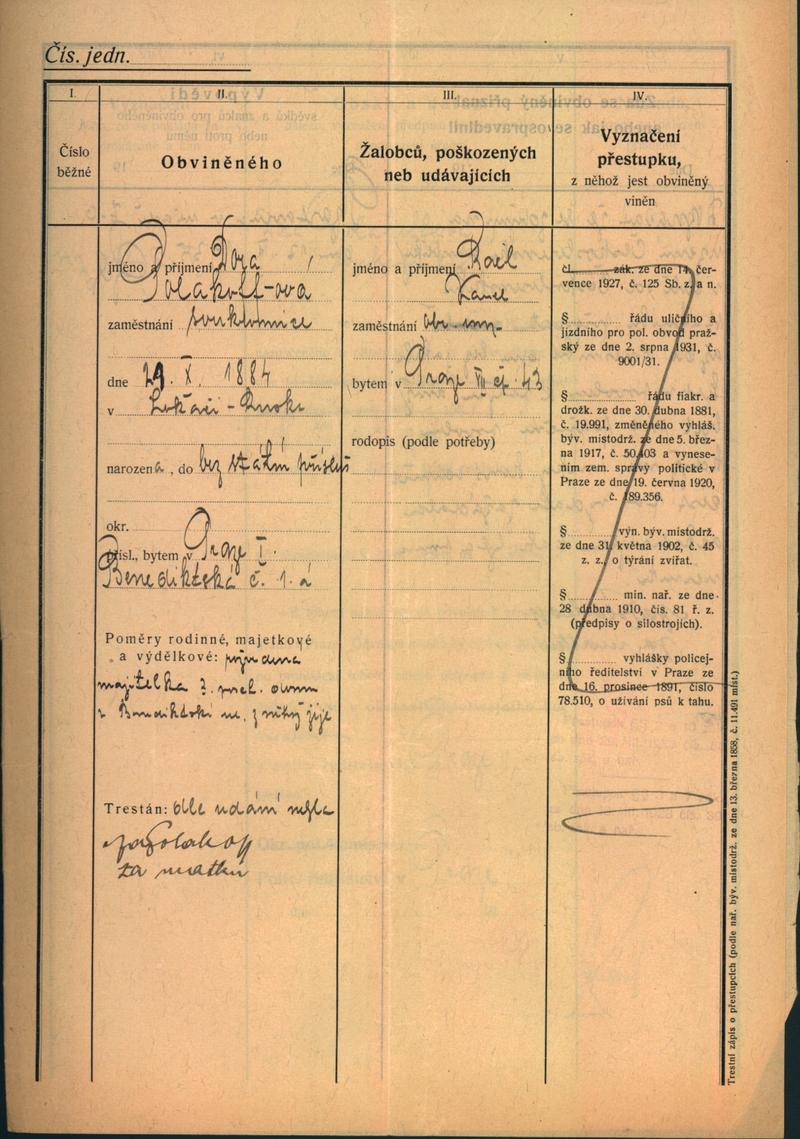 Čís. jedn.
I.
Číslo
běžné
II.
Obviněného
jméno a příjmení Dora
Polakoff-ová
zaměstnání soukromnice
dne 29. X. 1884
v
narozena, do bez státní přísluš
okr.
přísl., bytem v Praze I.
Benediktská č. 1. a
Poměry rodinné, majetkové
a výdělkové:
majitelka
v Benediktské ul., z níž žije
Trestán: dle udání
Polakoff
za matku
III.
Žalobců, poškozených
neb udávajících
jméno a příjmení
Karel
zaměstnání
bytem v Praze VII čp. 43
rodopis (podle potřeby)
IV.
Vyznačení
přestupku,
z něhož jest obviněný
viněn
čl. zák. ze dne 14. čer-
vence 1927, č. 125 Sb. z. a n.
§ řádu uličního a
jízdního pro pol. obvod praž-
ský ze dne 2. srpna 1931, č.
9001/31.
§ řádu fiakr. a
drožk. ze dne 30. dubna 1881,
č. 19.991, změněného vyhláš.
býv. místodrž. ze dne 5. břez-
na 1917, č. 50.403 a vynese-
ním zem. správy politické v
Praze ze dne 19. června 1920,
č. 189.356.
§ výn. býv. místodrž.
ze dne 31. května 1902, č. 45
z. z., o týrání zvířat.
§ min. nař. ze dne
28 dubna 1910, čís. 81 ř. z.
(předpisy o silostrojích).
§ vyhlášky policej-
ního ředitelství v Praze ze
dne 16. prosince 1891, číslo
78.510, o užívání psů k tahu.
Trestní zápis o přestupcích (podle nař. býv. místodrž. ze dne 13. března 1858, č. 11.491 míst.)